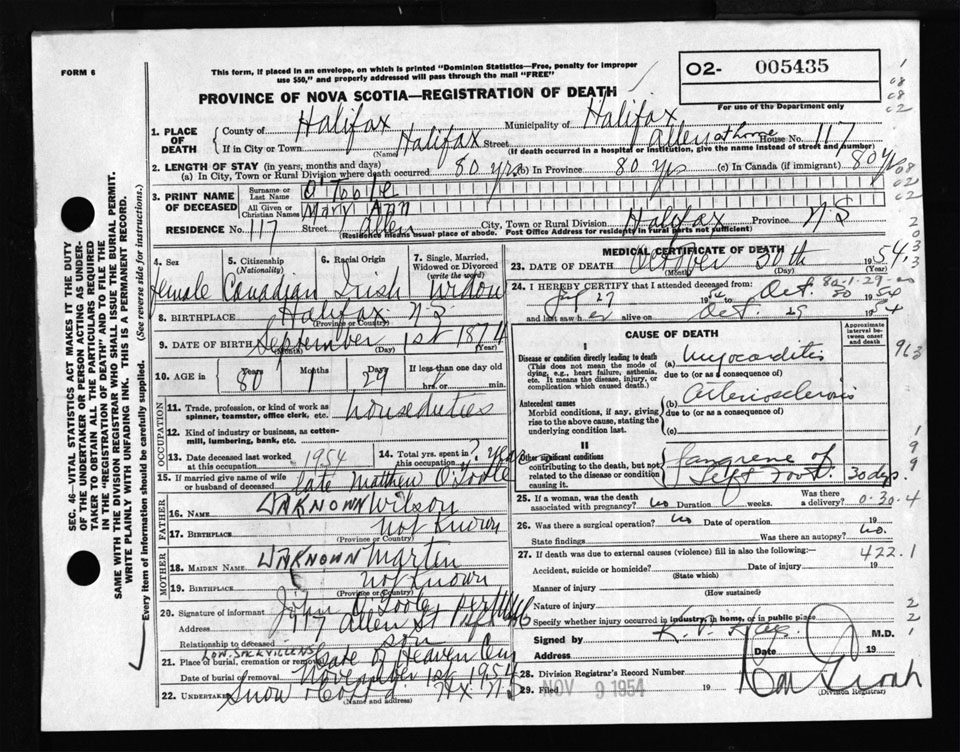 FORM 6
This form, if placed in an envelope, on which is printed "Dominion Statistics—Free, penalty for improper
use $50," and properly addressed will pass through the mail "FREE"
O2- 005435
For use of the Department only
PROVINCE OF NOVA SCOTIA—REGISTRATION OF DEATH
1. PLACE OF DEATH
County of Halifax Municipality of Halifax
If in City or Town Halifax (Name) Street Allen at home House No. 117
(If death occurred in a hospital or institution, give the name instead of street and number)
2. LENGTH OF STAY (in years, months and days)
(a) In City, Town or Rural Division where death occurred 80 yrs (b) In Province 80 yrs (c) In Canada (if immigrant) 80 yrs
3. PRINT NAME OF DECEASED
Surname or Last Name O'Toole
All Given or Christian Names Mary Ann
RESIDENCE No. 117 Street Allen City, Town or Rural Division Halifax Province N S
(Residence means usual place of abode. Post Office Address for residents in rural parts not sufficient)
4. Sex Female
5. Citizenship (Nationality) Canadian
6. Racial Origin Irish
7. Single, Married, Widowed or Divorced (write the word) Widow
8. BIRTHPLACE Halifax N S
(Province or Country)
9. DATE OF BIRTH September 1st 1874
(Month) (Day) (Year)
10. AGE in Years 80 Months 1 Days 29 If less than one day old
hrs. or min.
OCCUPATION
11. Trade, profession, or kind of work as
spinner, teamster, office clerk, etc. houseduties
12. Kind of industry or business, as cotten-
mill, lumbering, bank, etc.
13. Date deceased last worked
at this occupation 1954
14. Total yrs. spent in
this occupation
15. If married give name of wife
or husband of deceased late Matthew O'Toole
FATHER
16. NAME UNKNOWN Wilson
17. BIRTHPLACE not known
(Province or Country)
MOTHER
18. MAIDEN NAME UNKNOWN Martin
19. BIRTHPLACE not known
(Province or Country)
20. Signature of informant John O'Toole
Address 117 Allen St
Relationship to deceased son
LOW. SACKVILLE NS
21. Place of burial, cremation or removal Gate of Heaven Cem
Date of burial or removal November 1st 1954
22. Undertaker Snow & Co Ltd Hx N S
(Name and address)
MEDICAL CERTIFICATE OF DEATH
23. DATE OF DEATH October 30th 1954
(Month) (Day) (Year)
24. I HEREBY CERTIFY that I attended deceased from:
27 19 to Oct 30 1954
and last saw h er alive on Oct. 29 1954
CAUSE OF DEATH
Approximate interval between onset and death
I
Disease or condition directly leading to death
(This does not mean the mode of dying, e.g., heart failure, asthenia, etc. It means the disease, injury, or complication which caused death.)
(a) Myocarditis
due to (or as a consequence of)
Antecedent causes
Morbid conditions, if any, giving rise to the above cause, stating the underlying condition last.
(b) Arteriosclerosis
due to (or as a consequence of)
(c)
II
Other significant conditions
contributing to the death, but not related to the disease or condition causing it.
Gangrene of
Left Foot. 30 dys
25. If a woman, was the death
associated with pregnancy? no Duration weeks. Was there a delivery?
0.30.4
26. Was there a surgical operation? no Date of operation 19
State findings Was there an autopsy? no.
27. If death was due to external causes (violence) fill in also the following:—
422.1
Accident, suicide or homicide? Date of injury 19
(State which)
Manner of injury
(How sustained)
Nature of injury
Specify whether injury occurred in industry, in home, or in public place
Signed by M.D.
Address Date 19
28. Division Registrar's Record Number
29. Filed NOV 9 1954 19
(Division Registrar)
SEC. 46—VITAL STATISTICS ACT MAKES IT THE DUTY
OF THE UNDERTAKER OR PERSON ACTING AS UNDER-
TAKER TO OBTAIN ALL THE PARTICULARS REQUIRED
IN THE "REGISTRATION OF DEATH" AND TO FILE THE
SAME WITH THE DIVISION REGISTRAR WHO SHALL ISSUE THE BURIAL PERMIT.
WRITE PLAINLY WITH UNFADING INK. THIS IS A PERMANENT RECORD.
Every item of information should be carefully supplied. (See reverse side for instructions.)